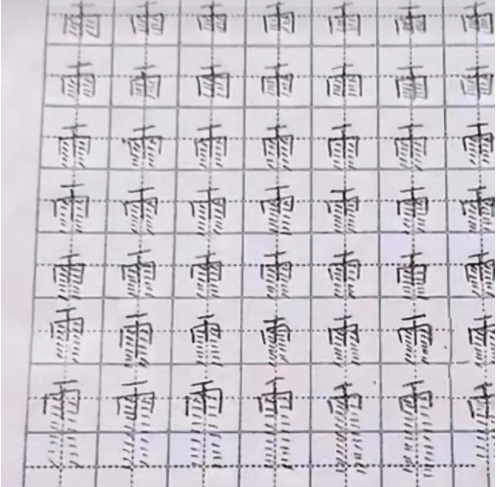 雨雨雨雨雨雨雨
雨雨雨雨雨雨雨
雨雨雨雨雨雨雨
雨雨雨雨雨雨雨
雨雨雨雨雨雨雨
雨雨雨雨雨雨雨
雨雨雨雨雨雨雨